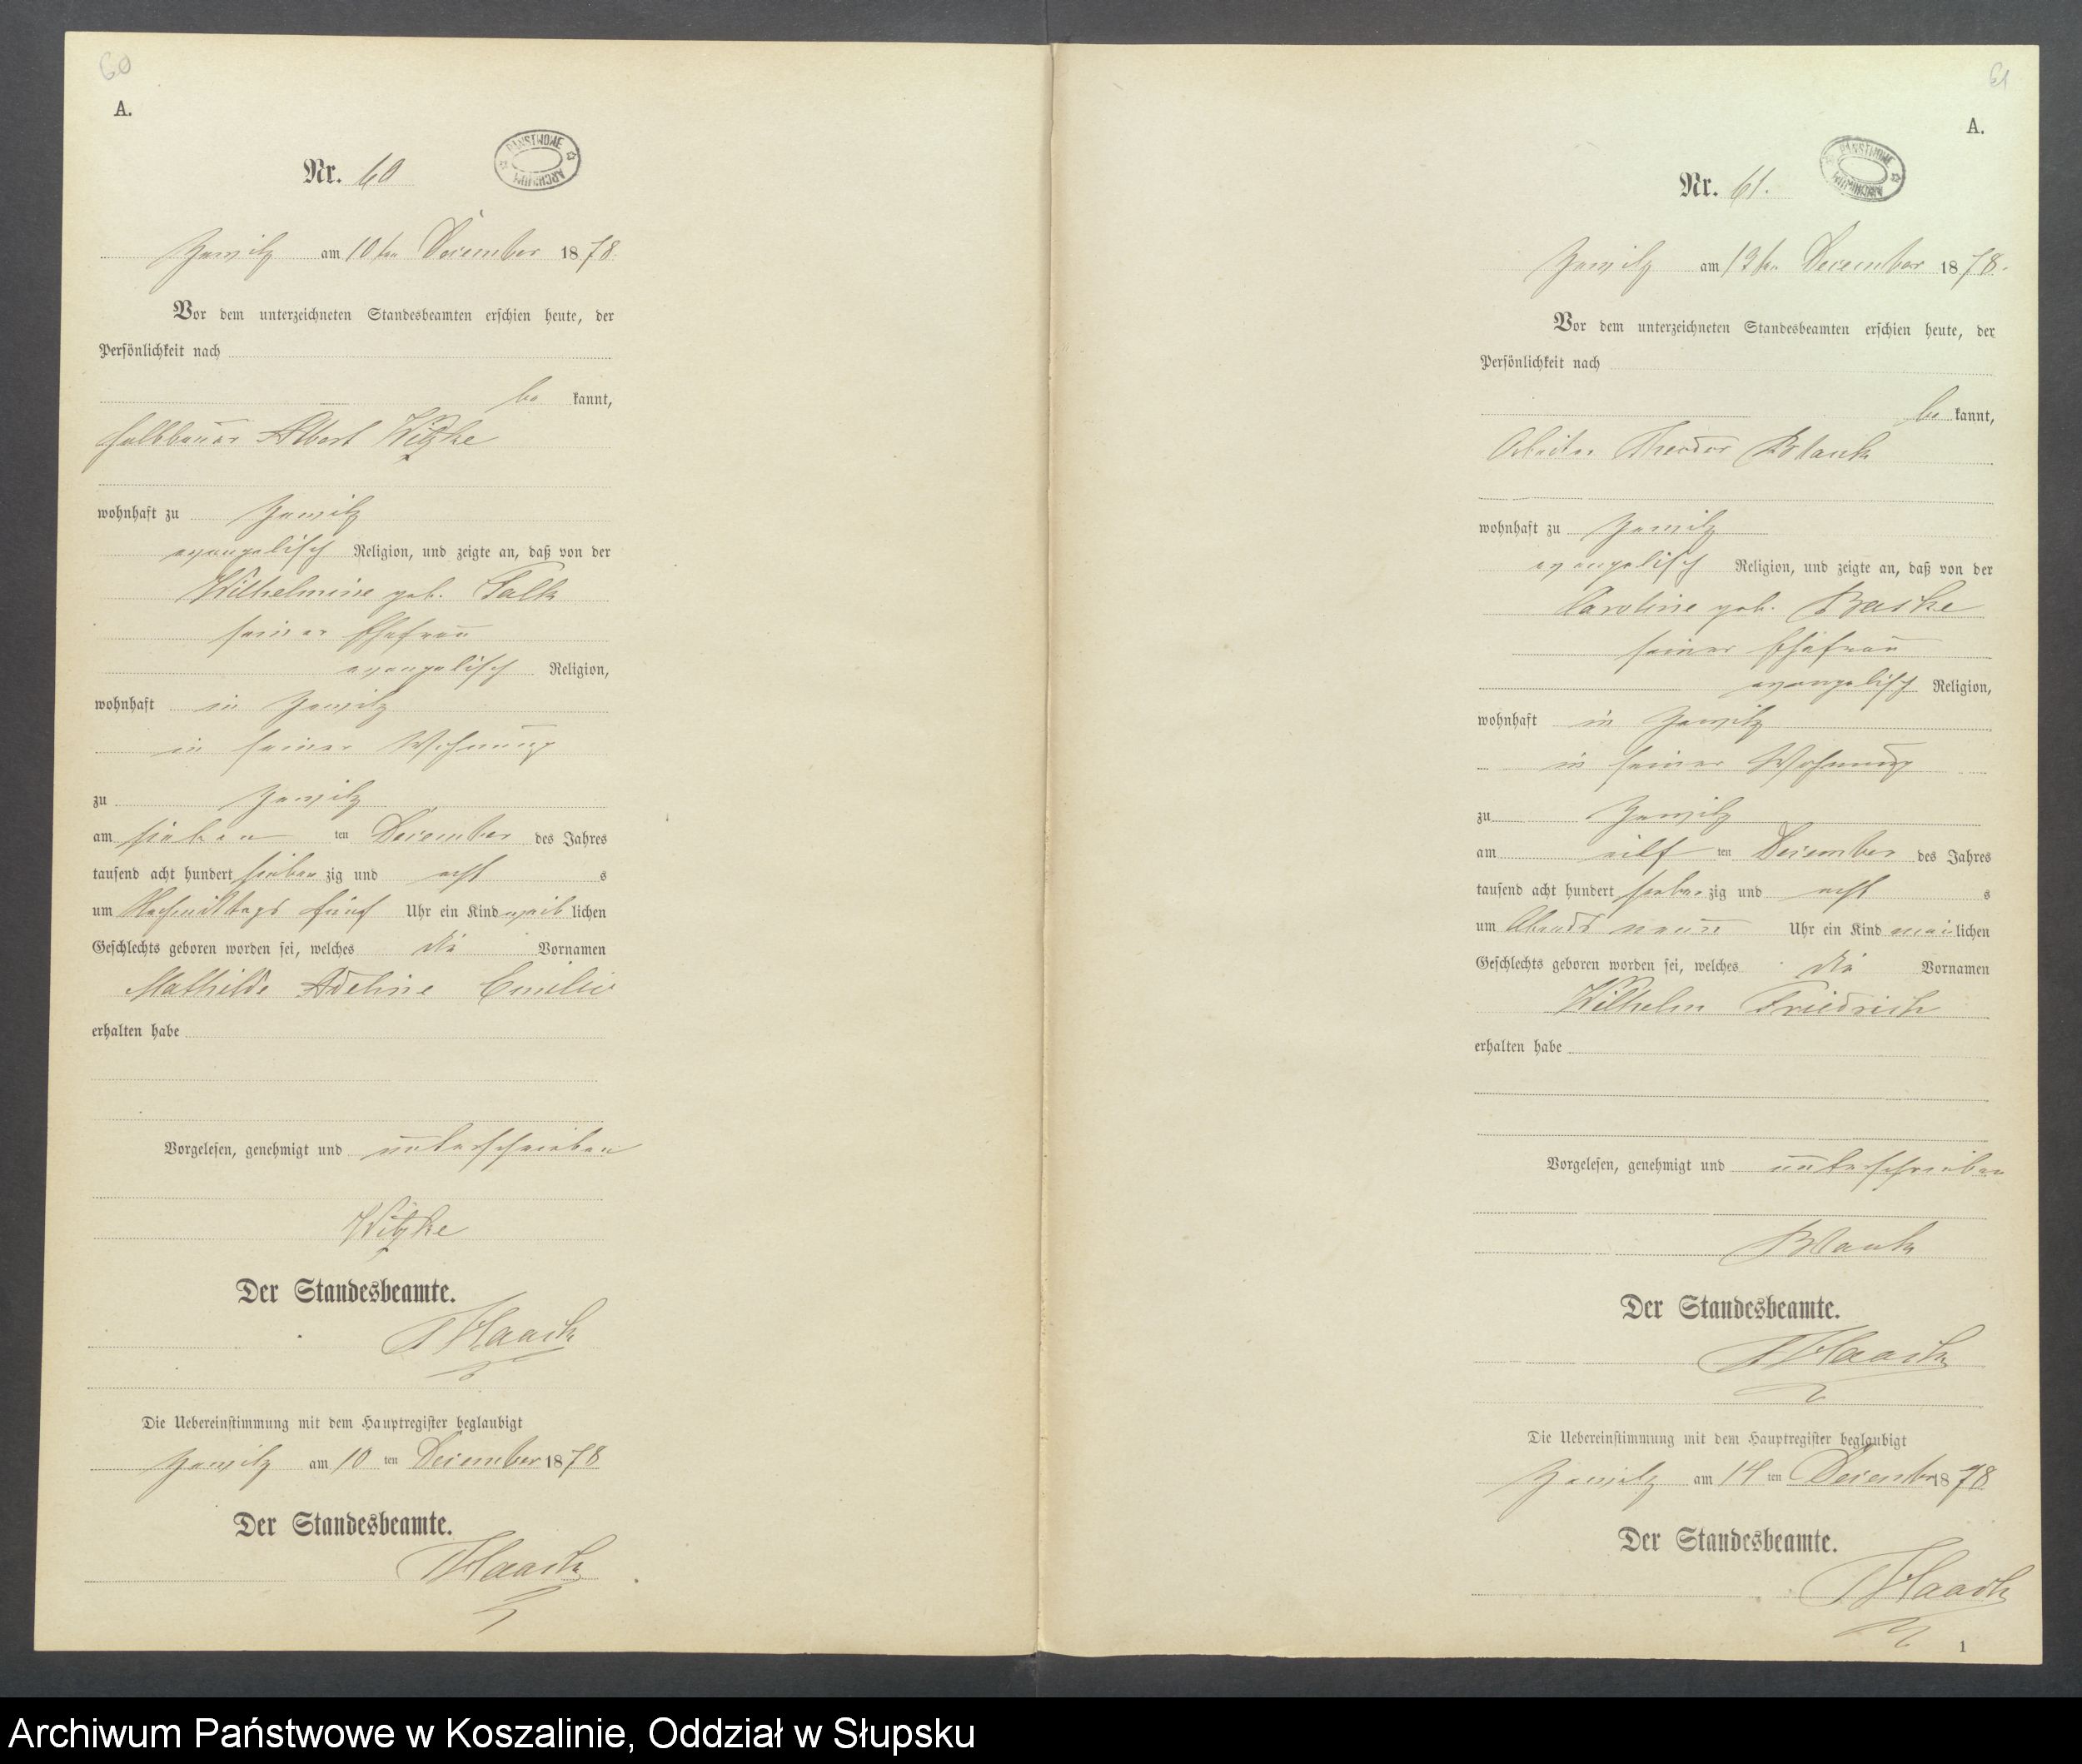 60
A.
Nr. 60
PAŃSTWOWE ARCHIWUM
am 10ten December 1878.
Vor dem unterzeichneten Standesbeamten erschien heute, der
Persönlichkeit nach
be kannt,
Halbbauer Albert Witzke
wohnhaft zu
evangelisch Religion, und zeigte an, daß von der
Wilhelmine geb. Falk
seiner Ehefrau
evangelisch Religion,
wohnhaft in
in seiner Wohnung
zu
am sieben ten December des Jahres
tausend acht hundert sieben zig und acht s
um Nachmittags fünf Uhr ein Kind weib lichen
Geschlechts geboren worden sei, welches die Vornamen
Mathilde Adeline Emilie
erhalten habe
Vorgelesen, genehmigt und unterschrieben
Witzke
Der Standesbeamte.
Haack
Die Uebereinstimmung mit dem Hauptregister beglaubigt
am 10 ten December 1878
Der Standesbeamte.
Haack
61
A.
Nr. 61.
PAŃSTWOWE ARCHIWUM
am ten December 1878.
Vor dem unterzeichneten Standesbeamten erschien heute, der
Persönlichkeit nach
be kannt,
Arbeiter Theodor Blank
wohnhaft zu
evangelisch Religion, und zeigte an, daß von der
Caroline geb.
seiner Ehefrau
evangelisch Religion,
wohnhaft in
in seiner Wohnung
zu
am eilf ten December des Jahres
tausend acht hundert sieben zig und acht s
um Abends neun Uhr ein Kind män lichen
Geschlechts geboren worden sei, welches die Vornamen
Wilhelm Friedrich
erhalten habe
Vorgelesen, genehmigt und unterschrieben
Blank
Der Standesbeamte.
Haack
Die Uebereinstimmung mit dem Hauptregister beglaubigt
am 14 ten December 1878
Der Standesbeamte.
Haack
1
Archiwum Państwowe w Koszalinie, Oddział w Słupsku